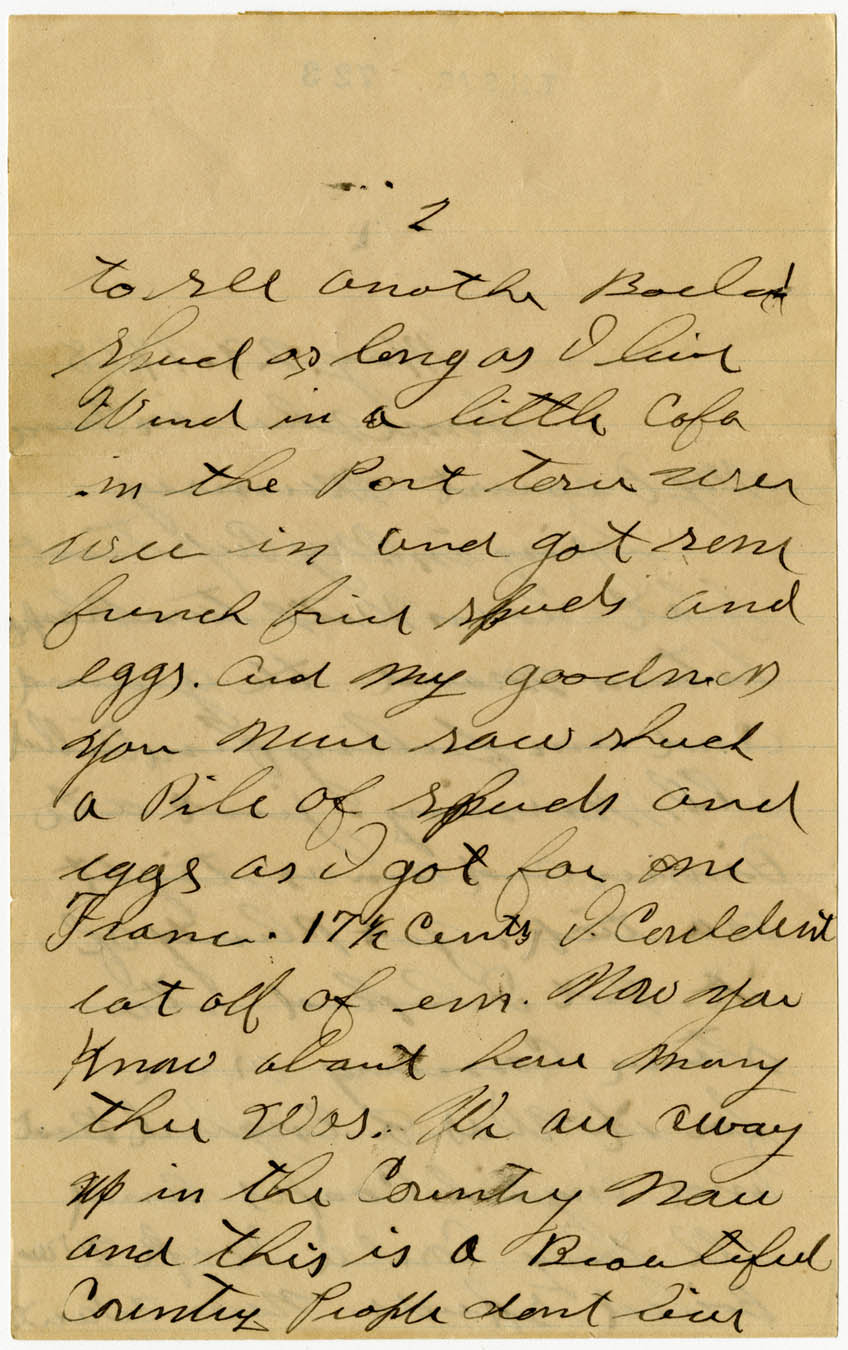 2
to see anothe Boeled
spud as long as I live
Wend in a little Cafa
in the Port town
in and got some
french fried spuds and
eggs. and my goodness
you never saw shuch
a Pile of spuds and
eggs as I got for one
Franc. 17½ Cents I. Couldent
eat all of em. Now you
Know about how many
ther Was. We are away
up in the Country Now
and this is a Beautiful
Country People dont live